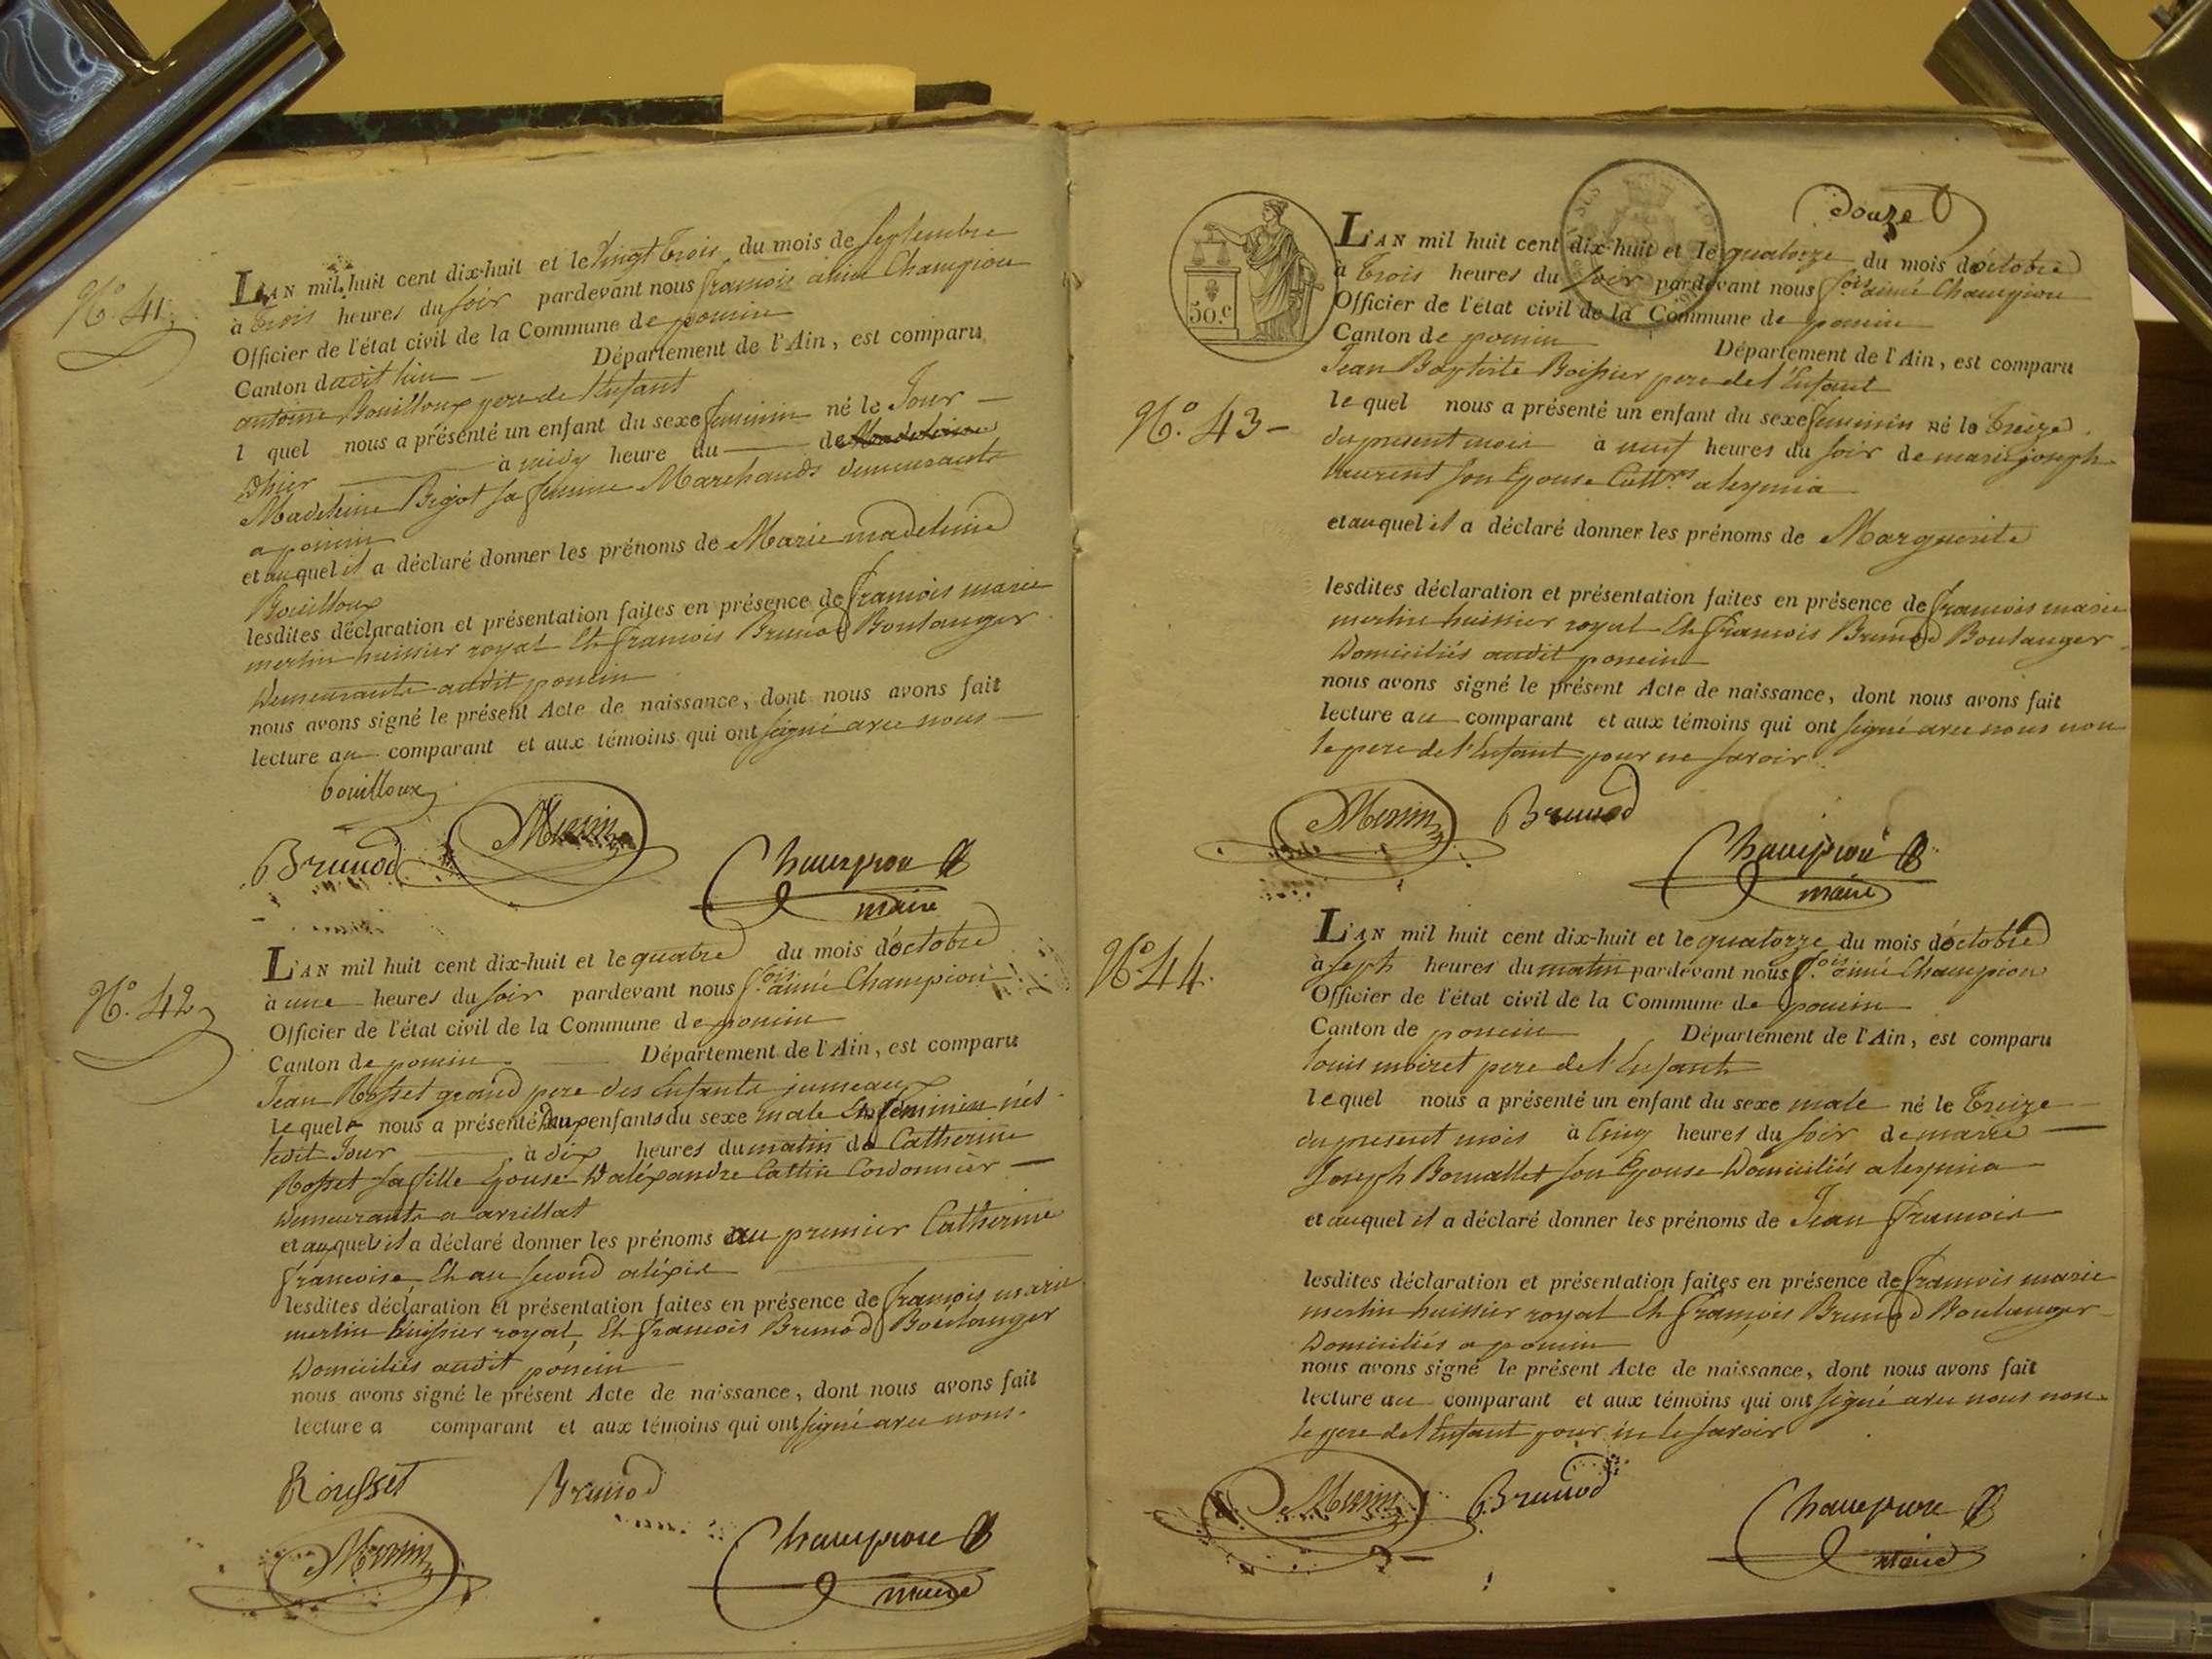 N.º 41.
L'AN mil huit cent dix-huit et le vingt trois du mois de septembre
à trois heures du soir pardevant nous françois aimé Champion
Officier de l'état civil de la Commune de poncin
Canton dudit lieu Département de l'Ain, est comparu
antoine Bouilloux pere de l'Enfant
l quel nous a présenté un enfant du sexe feminin né le Jour
D'hier à midy heure du de
Madeleine Bigot sa femme Marchands demeurants
a poncin
et auquel il a déclaré donner les prénoms de Marie madeleine
Bouilloux
lesdites déclaration et présentation faites en présence de francois marie
merlin huissier royal Et francois Brunod Boulanger
demeurants audit poncin
nous avons signé le présent Acte de naissance, dont nous avons fait
lecture au comparant et aux témoins qui ont signé avec nous
bouilloux
Brunod Merlin
Champion
maire
N.º 42
L'AN mil huit cent dix-huit et le quatre du mois d'octobre
à une heures du soir pardevant nous f.ois aimé Champion
Officier de l'état civil de la Commune de poncin
Canton de poncin Département de l'Ain, est comparu
Jean Rosset grand pere des Enfants jumeaux
le quel nous a présenté Deux enfants du sexe male Et féminin nés
ledit Jour à dix heures du matin de Catherine
Rosset sa fille Epouse d'aléxandre Cattin Cordonnier
demeurants a
et auxquels il a déclaré donner les prénoms au premier Catherine
francoise, Et au second aléxis
lesdites déclaration et présentation faites en présence de francois marie
merlin huissier royal, Et francois Brunod Boulanger
Domiciliés audit poncin
nous avons signé le présent Acte de naissance, dont nous avons fait
lecture a comparant et aux témoins qui ont signé avec nous.
Rousset Brunod
Merlin
Champion
maire
douze
50.c
L'AN mil huit cent dix-huit et le quatorze du mois d'octobre
à trois heures du soir pardevant nous f.ois aimé Champion
Officier de l'état civil de la Commune de poncin
Canton de poncin Département de l'Ain, est comparu
Jean Baptiste Boissier pere de l'Enfant
N.º 43
le quel nous a présenté un enfant du sexe feminin né le treize
du present mois à neuf heures du soir de marie joseph
laurent son Epouse Cult.rs a leymia
et auquel il a déclaré donner les prénoms de Marguerite
lesdites déclaration et présentation faites en présence de francois marie
merlin huissier royal Et francois Brunod Boulanger
Domiciliés audit poncin
nous avons signé le présent Acte de naissance, dont nous avons fait
lecture au comparant et aux témoins qui ont signé avec nous non
le pere de l'Enfant pour ne savoir.
Merlin Brunod
Champion
maire
N.º 44.
L'AN mil huit cent dix-huit et le quatorze du mois d'octobre
à sept heures du matin pardevant nous f.ois aimé Champion
Officier de l'état civil de la Commune de poncin
Canton de poncin Département de l'Ain, est comparu
louis moiret pere de l'Enfant
le quel nous a présenté un enfant du sexe male né le treize
du present mois à Cinq heures du soir de marie
Joseph son Epouse Domiciliés a leymia
et auquel il a déclaré donner les prénoms de Jean francois
lesdites déclaration et présentation faites en présence de francois marie
merlin huissier royal Et françois Brunod Boulanger
Domiciliés a poncin
nous avons signé le présent Acte de naissance, dont nous avons fait
lecture au comparant et aux témoins qui ont signé avec nous non
le pere de l'Enfant pour ne le savoir
Merlin Brunod
Champion
maire